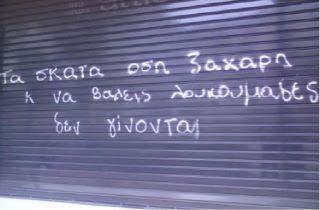 Τα σκατα οση ζαχαρη
κ να βαλεις λουκουμαδες
δεν γίνονται